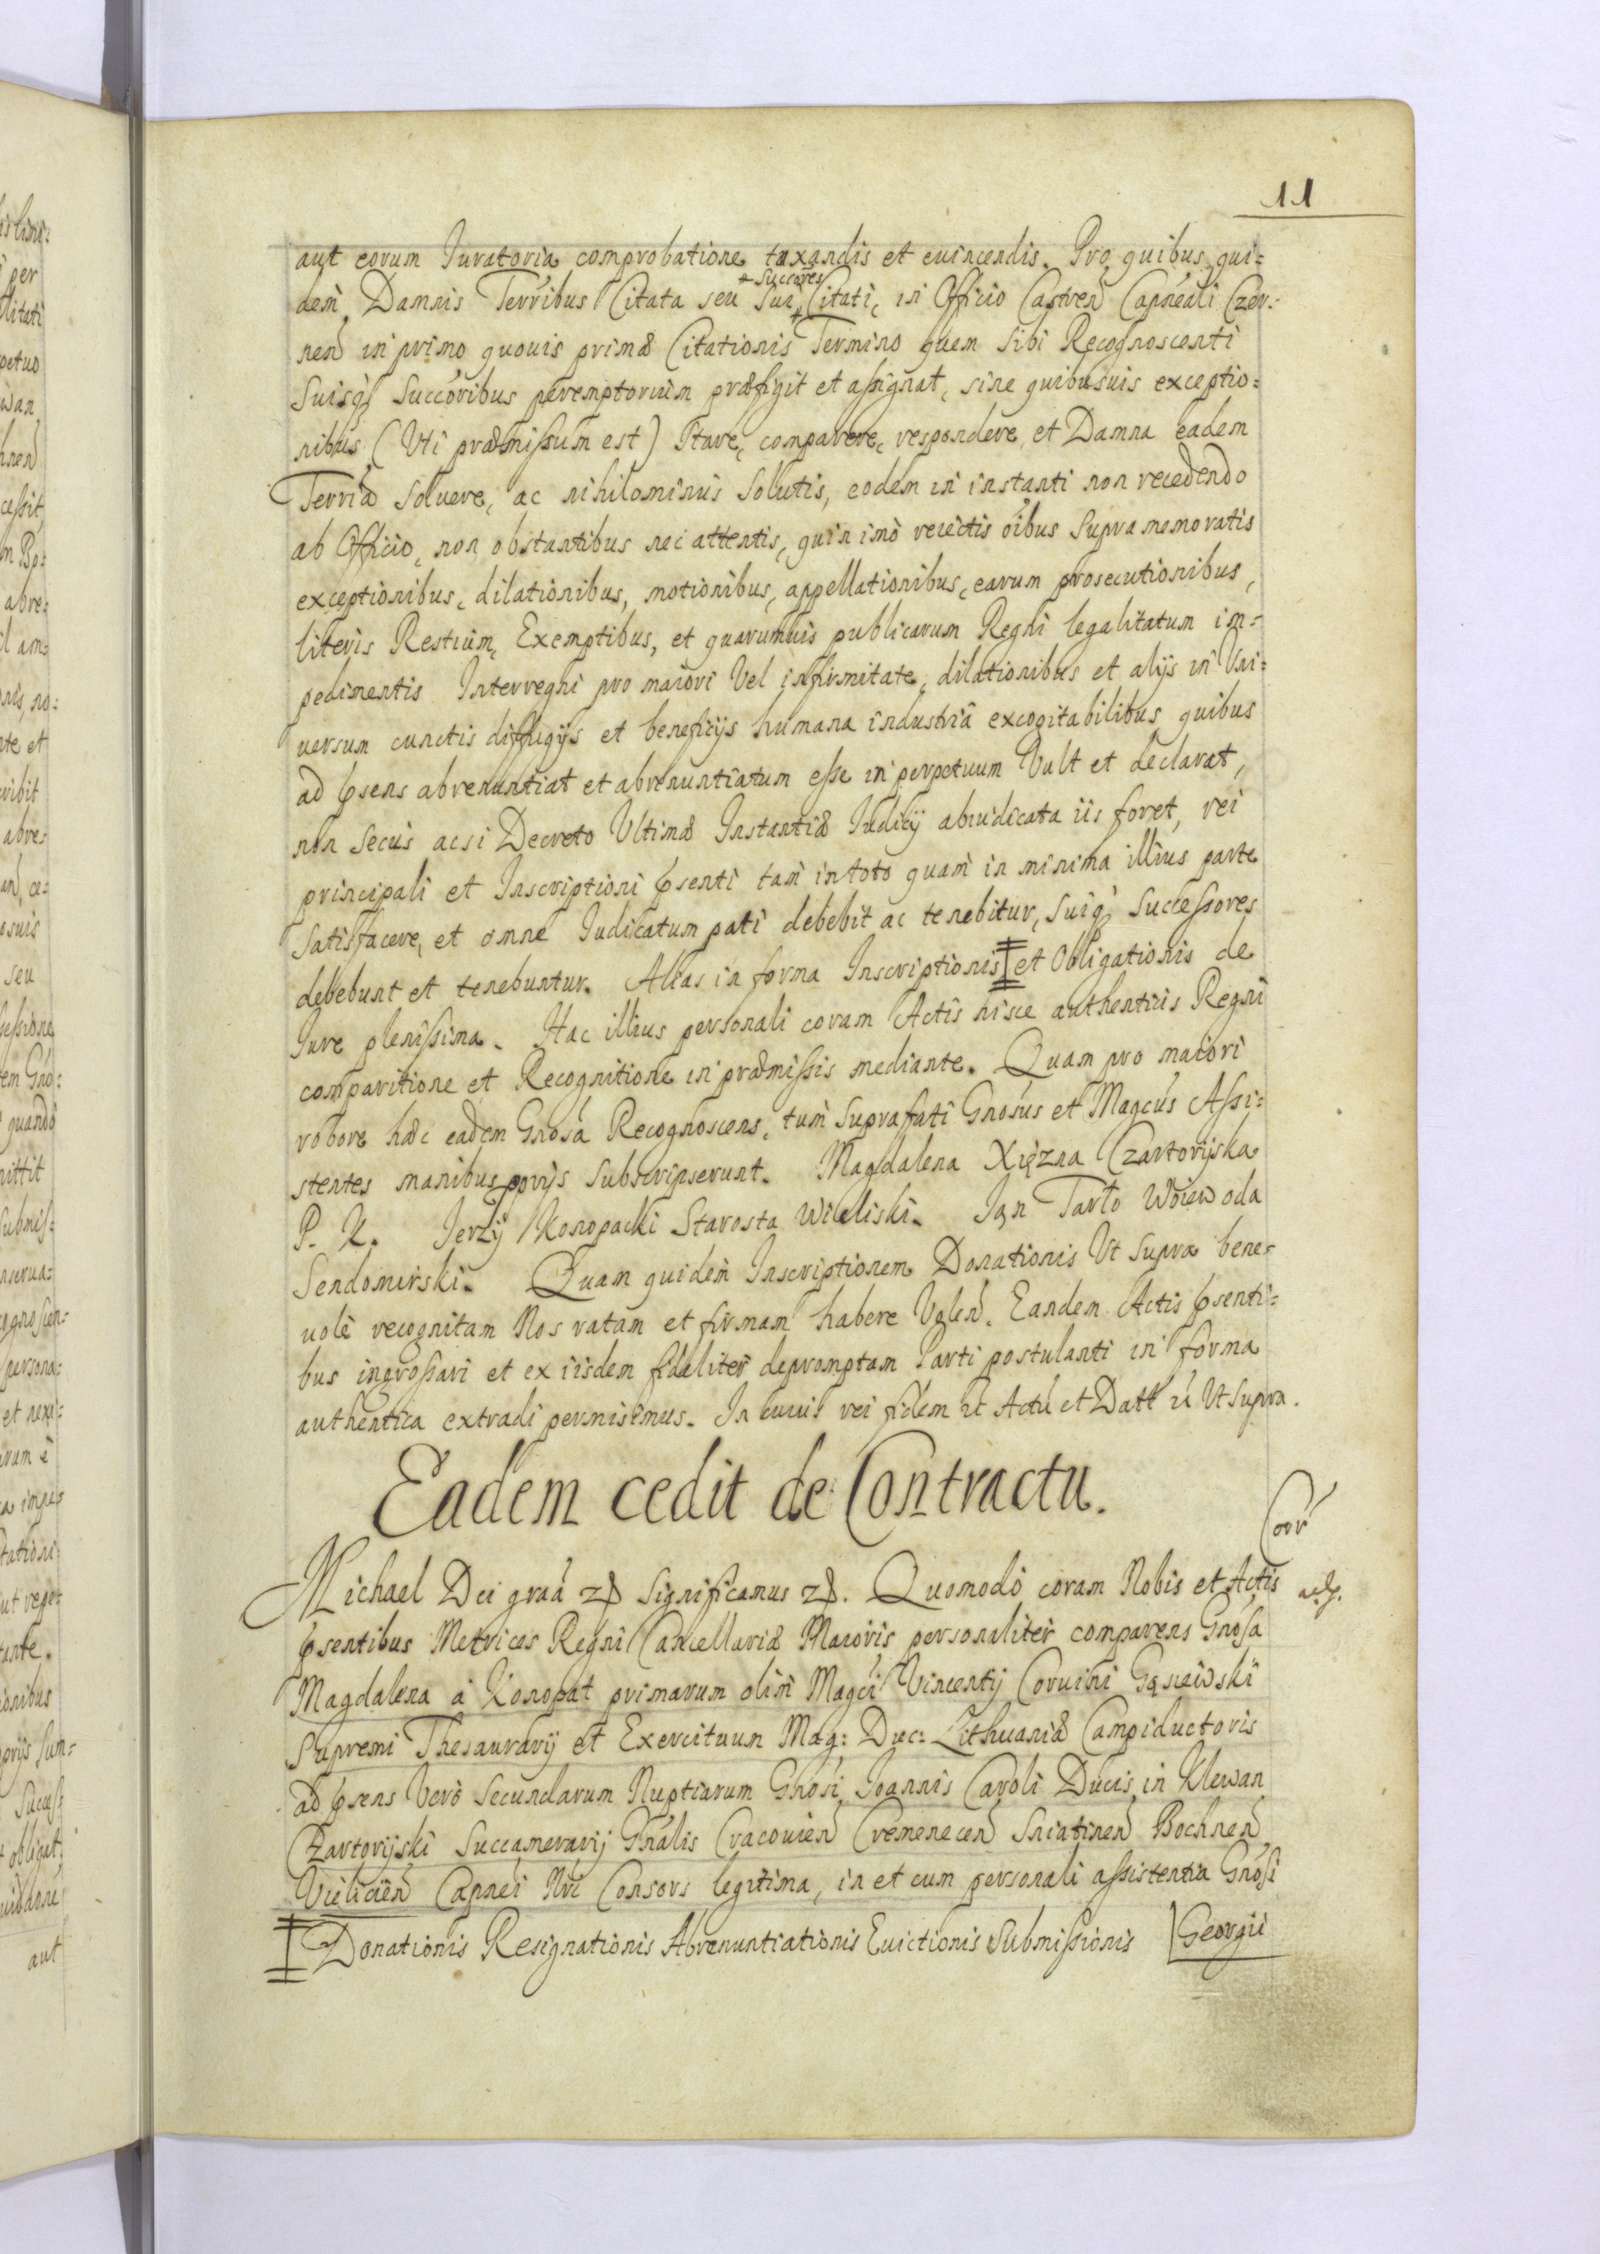 11
aut eorum Iuratoria comprobatione taxandis et euincendis. Pro quibus qui=
dem Damnis Terribus Citata seu Sui + Succres Citati, in Officio Castren Capneali Czer=
nen in primo quouis primæ Citationis Termino quem sibi Recognoscenti
Suisq Succoribus peremptorium præfigit et assignat, sine quibusuis exceptio=
nibus (Uti præmissum est) Stare, comparere, respondere, et Damna eadem
Terria soluere, ac nihilominus solutis, eodem in instanti non recedendo
ab Officio, non obstantibus nec attentis, quin imò reiectis oibus supra memoratis
exceptionibus, dilationibus, motionibus, appellationibus, earum prosecutionibus,
literis Restium, Exemptibus, et quarumuis publicarum Regni legalitatum im=
pedimentis Interregni pro maiori Vel infirmitate, dilationibus et alijs in Uni=
uersum cunctis diffugijs et beneficijs humana industriâ excogitabilibus quibus
ad psens abrenuntiat et abrenuntiatum esse in perpetuum Vult et declarat,
non secus acsi Decreto Ultimæ Instantiæ Iudicij abiudicata iis foret, rei
principali et Inscriptioni psenti tam in toto quam in minima illius parte
satisfacere, et omne Iudicatum pati debebit ac tenebitur, suiq Successores
debebunt et tenebuntur. Alias in forma Inscriptionis et Obligationis de
Iure plenissima. Hac illius personali coram Actis hisce authenticis Regni
comparitione et Recognitione in præmissis mediante. Quam pro maiori
robore hæc eadem Gnosa Recognoscens, tum suprafati Gnosus et Magcus Assi=
stentes manibus prijs subscripserunt. Magdalena Xiężna Czartoryska
P. K. Jerzy Konopacki Starosta Wieliski. Jan Tarło Woiewoda
Sendomirski. Quam quidem Inscriptionem Donationis Ut supra bene=
uolè recognitam Nos ratam et firmam habere Volen, Eandem Actis psenti=
bus ingrossari et ex iisdem fideliter depromptam Parti postulanti in forma
authentica extradi permisimus. In cuius rei fidem Actu et Datt Ut supra.
Eadem cedit de Contractu.
Corr
Michael Dei graa significamus Quomodo coram Nobis et Actis
psentibus Metrices Regni Cancellariæ Maioris personaliter comparens Gnosa
Magdalena à Konopat primarum olim Magci Vincentij Coruini Gąsiewski
Supremi Thesaurarij et Exercituum Mag: Duc: Lithuaniæ Campiductoris
ad psens Vero Secundarum Nuptiarum Gnosi Joannis Caroli Ducis in Klewan
Czartoryski Succamerarij Gnalis Cracouien Cremenecen Sniatinen Bochnen
Vielicien Capnei Nri Consors legitima, in et cum personali assistentia Gnosi
Donationis Resignationis Abrenuntiationis Euictionis Submissionis
Georgii